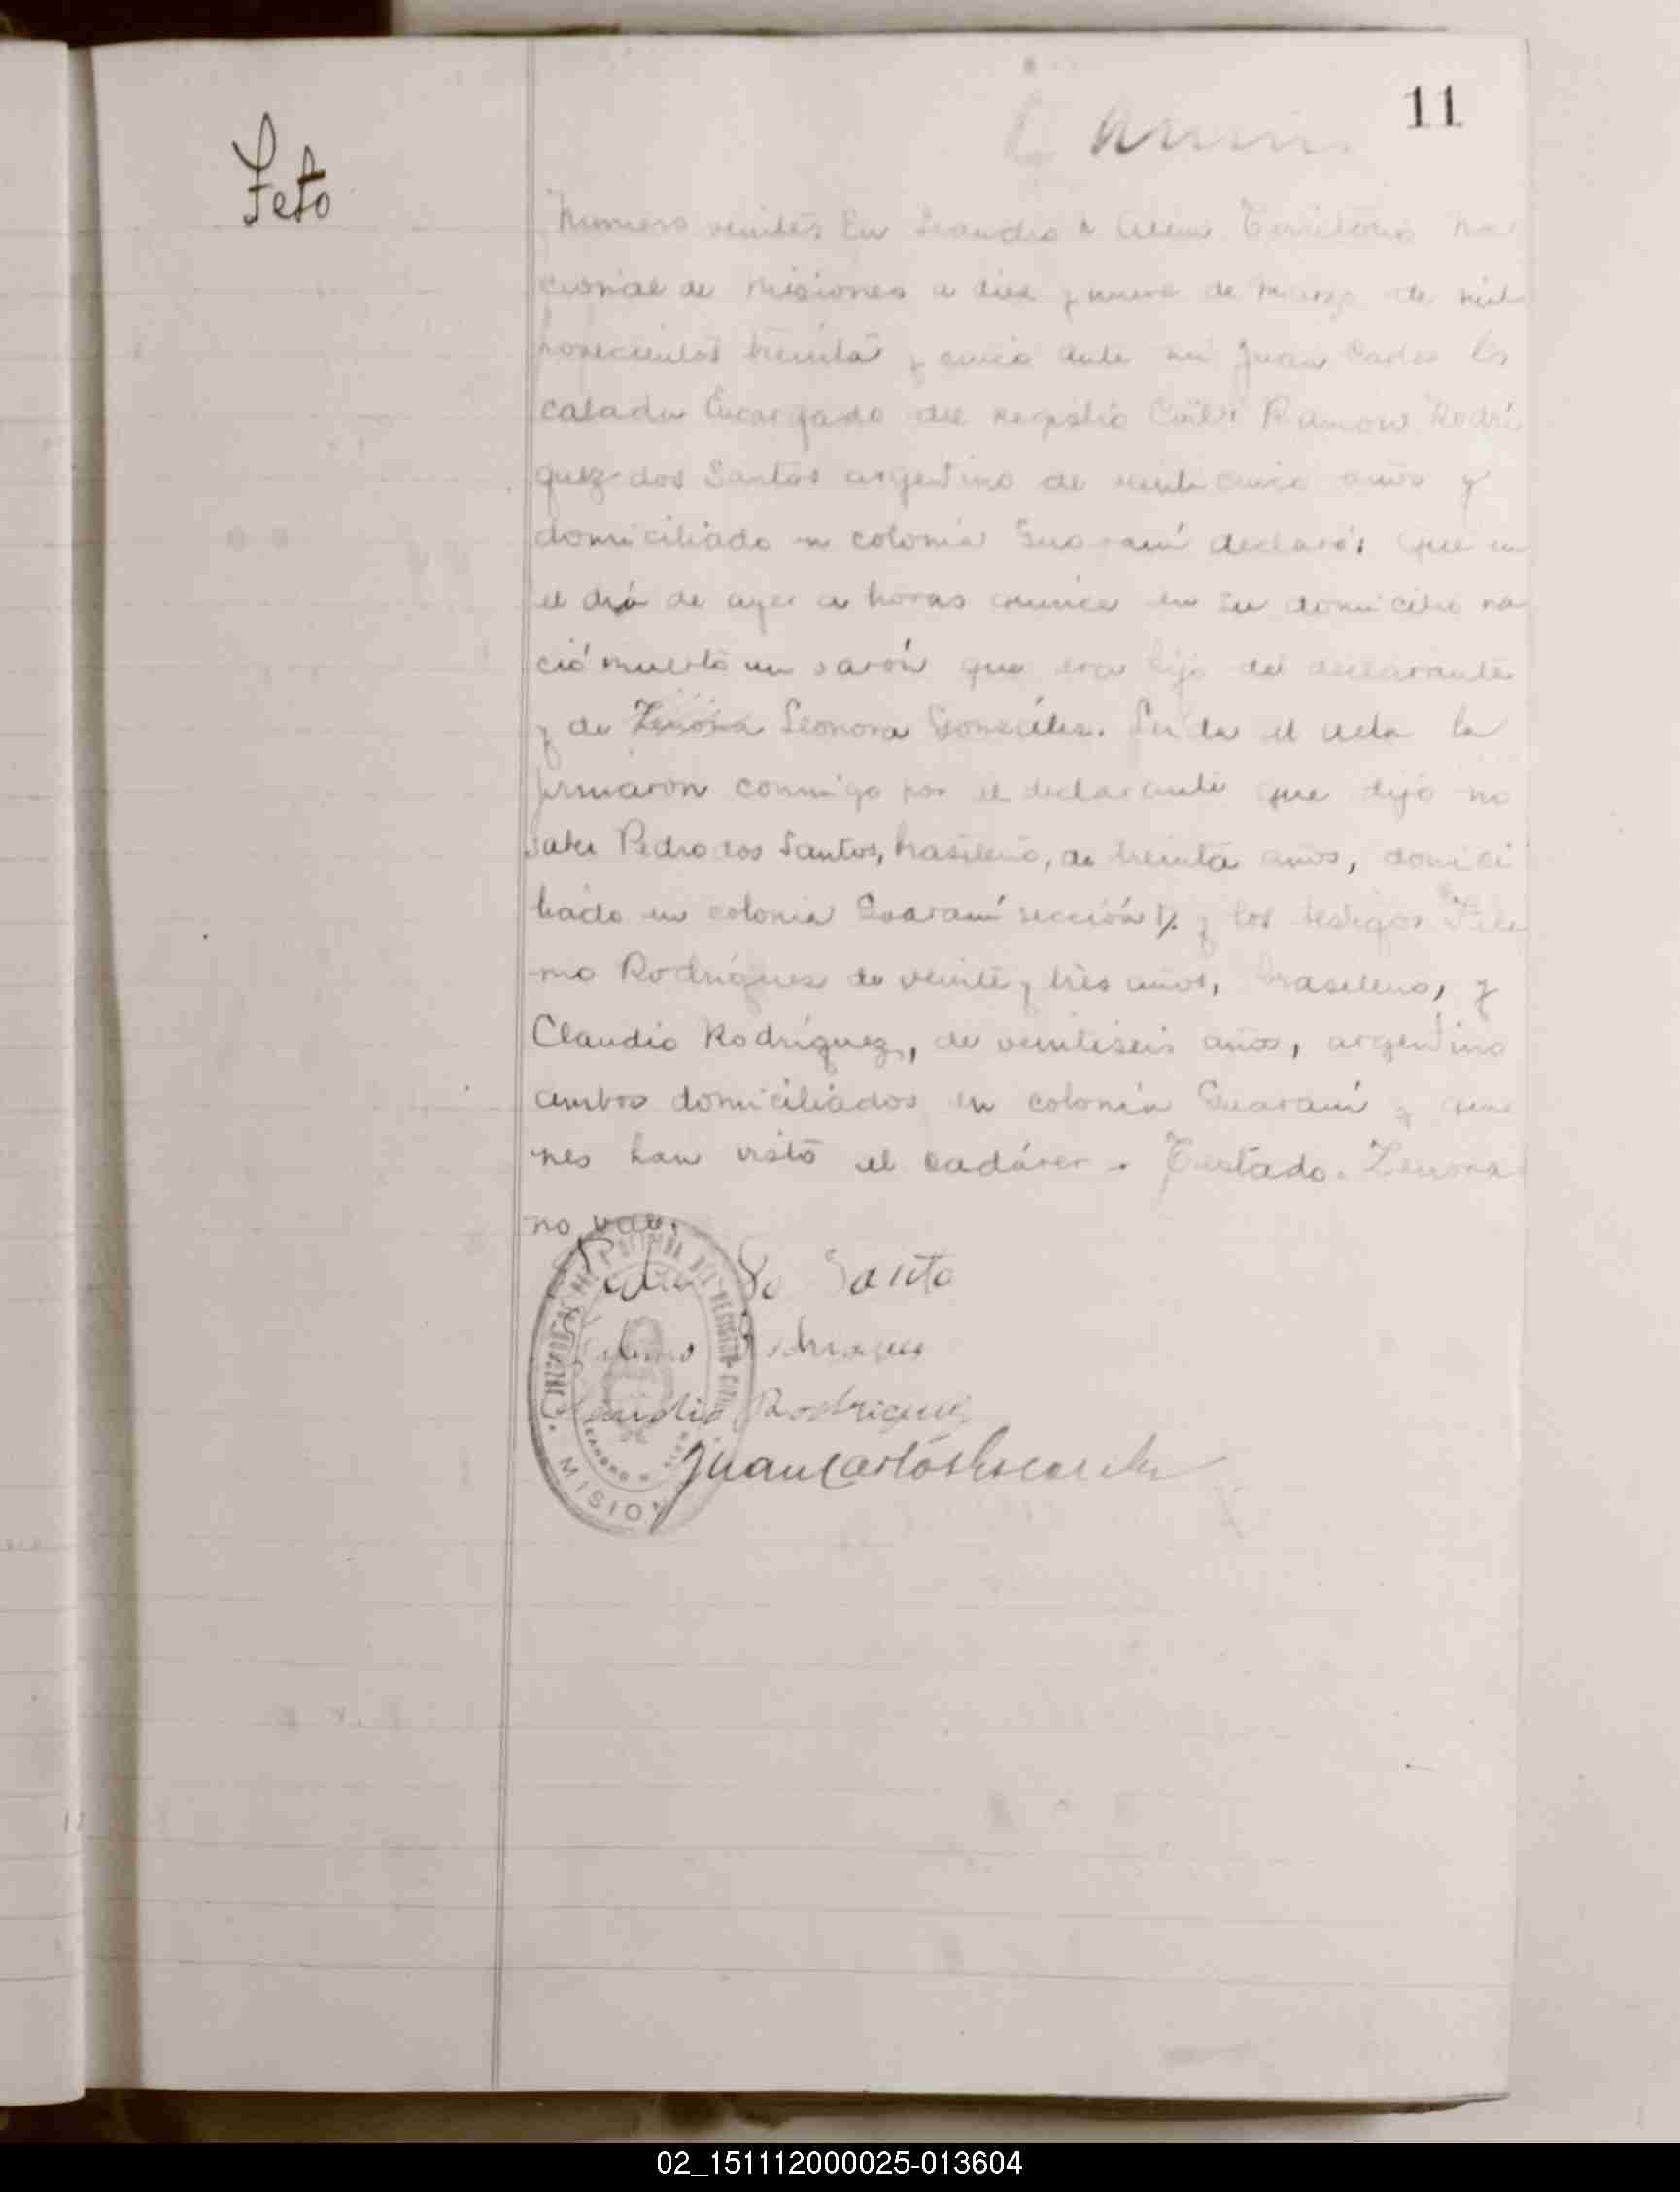 11
Feto
Numero veintes En Leandro N Alem Territorio Na
cional de Misiones a diez y nueve de Marzo de mil
novecientos treinta y cinco ante mi Juan Carlos Es
calada Encargado del Registro Civil: Ramon Rodri
guez dos Santos argentino de veinte cinco años y
domiciliado en colonia Guarani declaró: Que en
el día de ayer a horas quince en su domicilio na
ció muerto un varón que era hijo del declarante
y de Zenona Leonora González. Leida el acta la
firmaron conmigo por el declarante que dijo no
saber Pedro dos Santos, brasileño, de treinta años, domici
liado en colonia Guaraní sección y los testigos
mo Rodríguez de veinte y tres años, brasileno, y
Claudio Rodríguez, de veintiseis años, argentino
ambos domiciliados en colonia Guaraní y quie
nes han visto el cadáver. Testado. Zenona
no vale.
Pedro Do Santo
Rodrigues
Claudio Rodriguez
Juan Carlos Escalada
OFICINA DEL REGISTRO CIVIL
LEANDRO N. ALEM
MISIONES
02_151112000025-013604